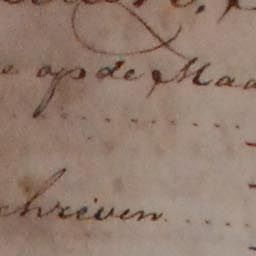 e op de Maa
chreven